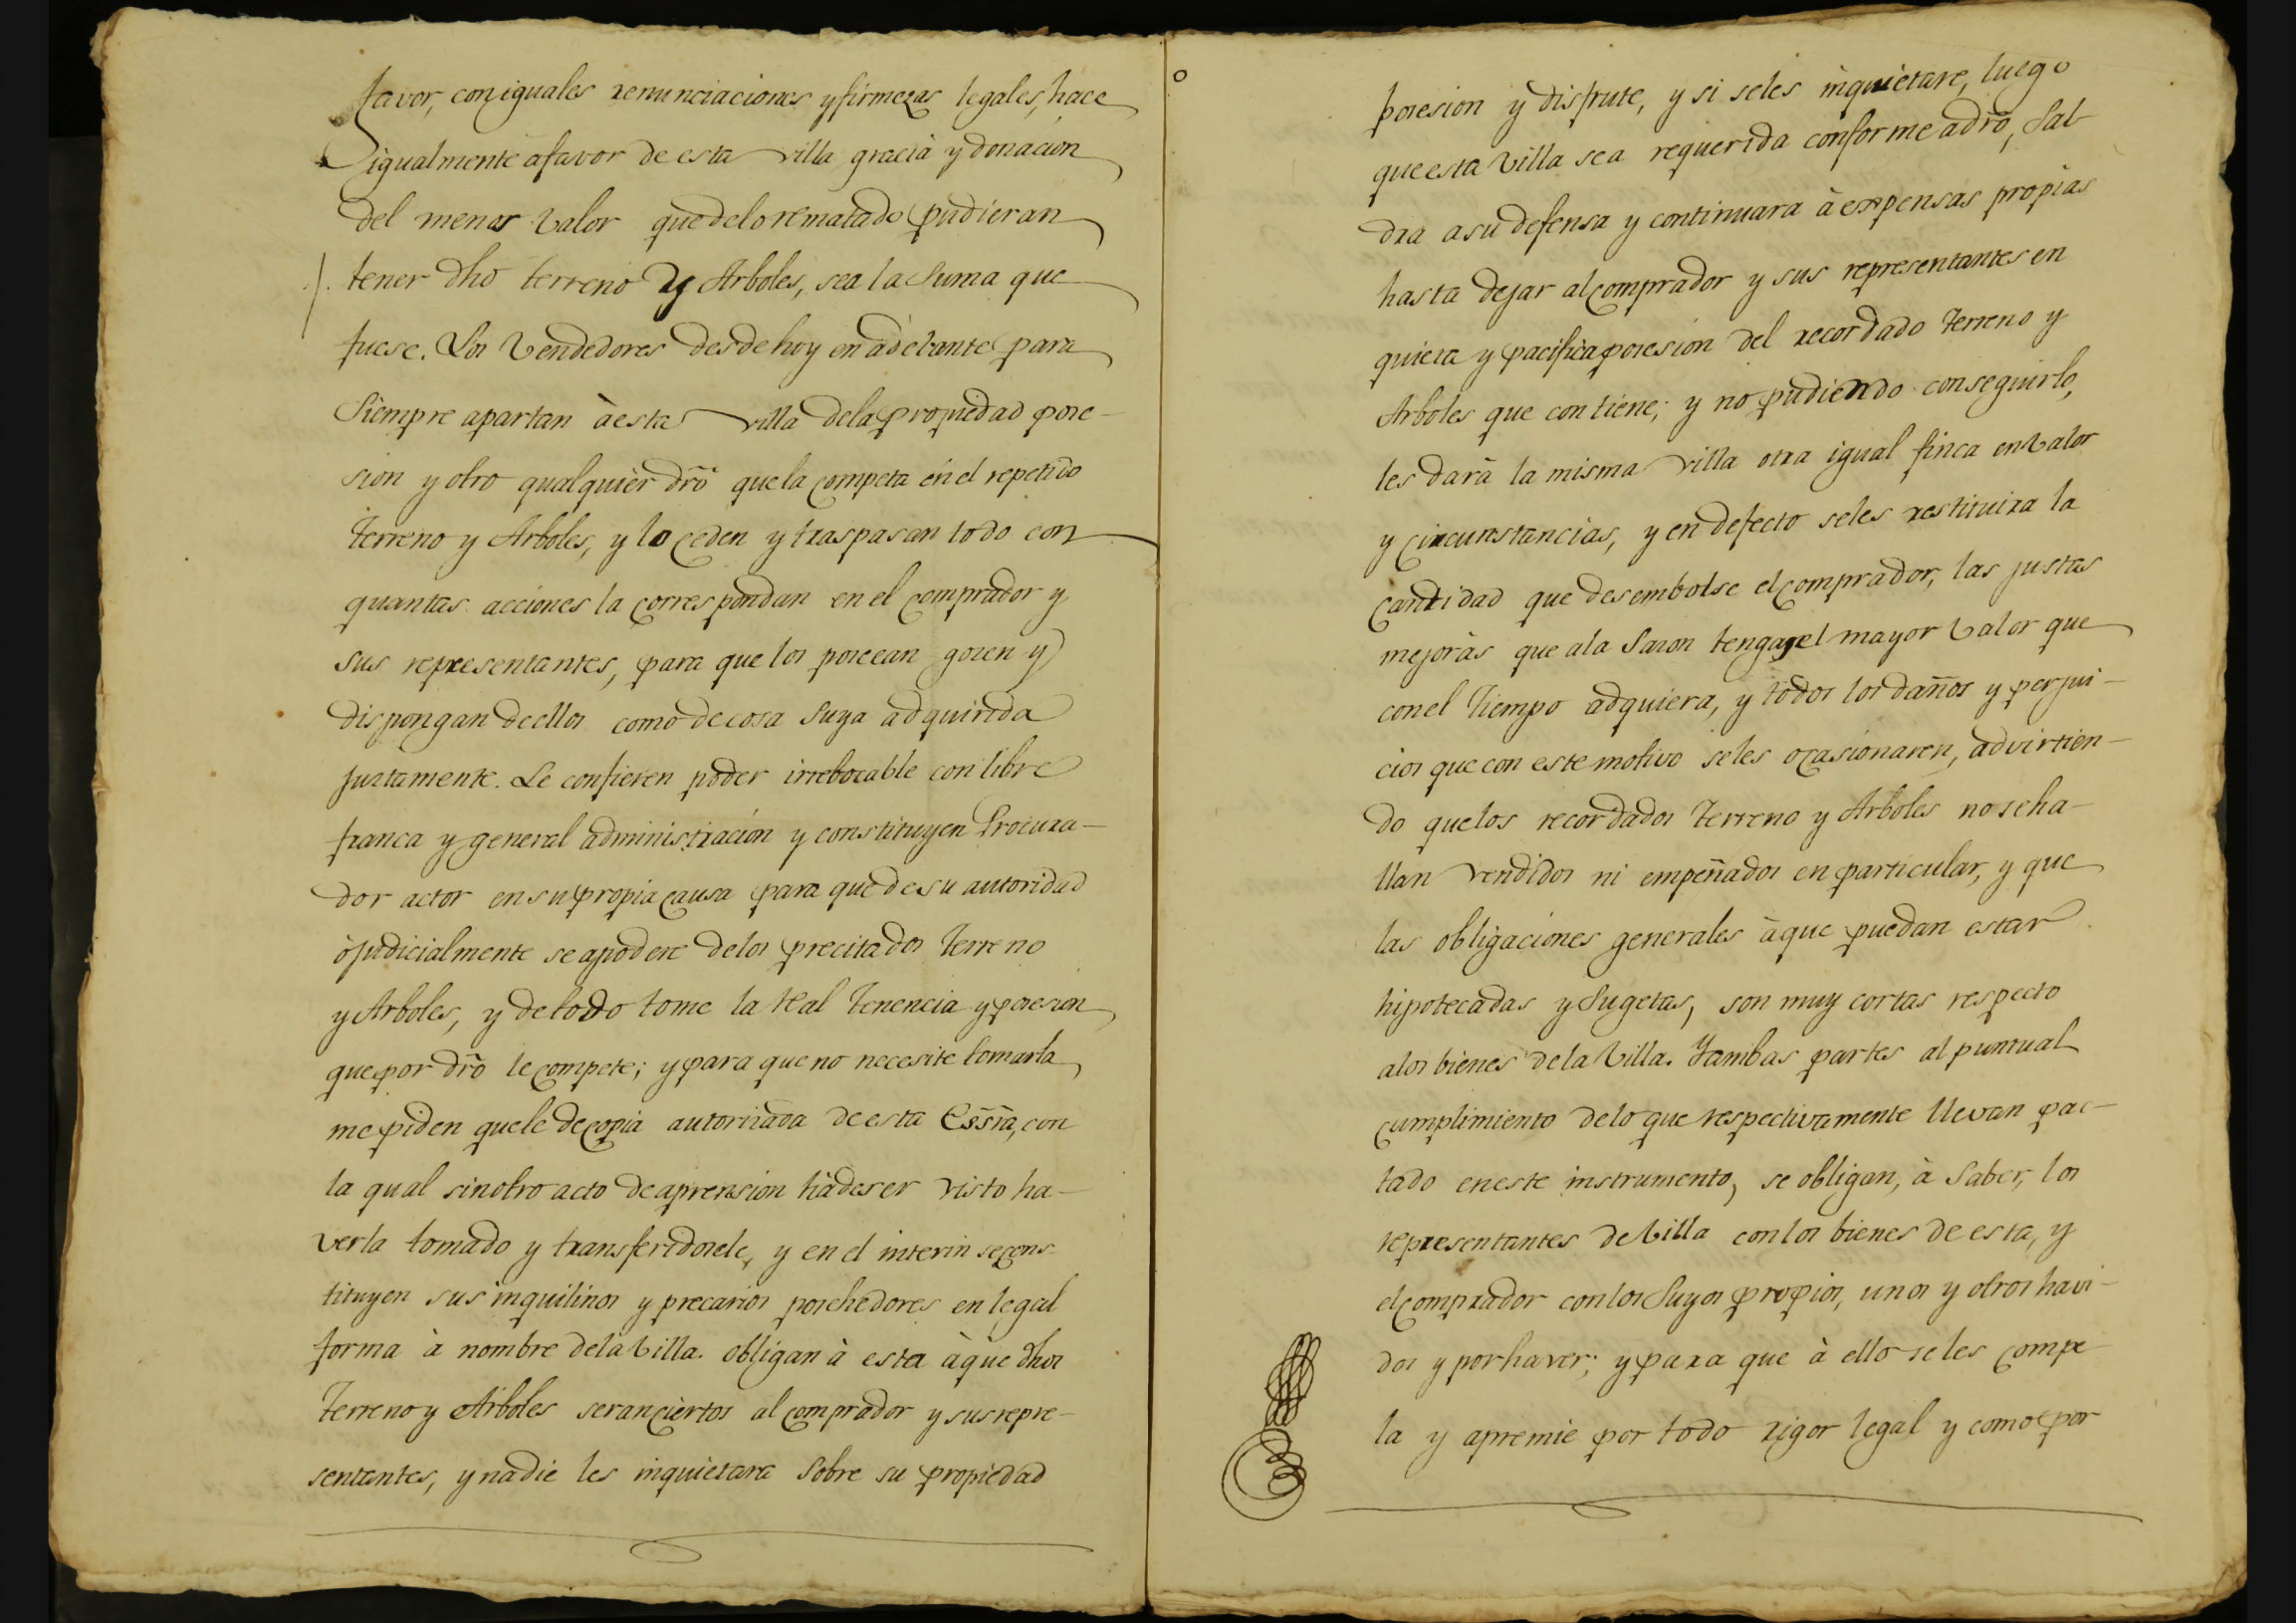 favor, con iguales renunciaciones y firmezas legales, hace
igualmente à favor de esta villa gracia y donacion
del menor valor que de lo rematado pudieran
tener dho terreno y Arboles, sea la suma que
fuese. Los Vendedores desde hoy en adelante para
siempre apartan à esta villa de la propiedad pose-
sion y otro qualquier dr̃o que la competa en el repetido
Terreno y Arboles, y lo ceden y traspasan todo con
quantas acciones la correspondan en el comprador y
sus representantes, para que los poseean gozen y
dispongan de ellos como de cosa suya adquirida
justamente. Le confieren poder irrebocable con libre
franca y general administracion y constituyen Procura-
dor actor en su propia causa para que de su autoridad
ò judicialmente se apodere de los precitados Terreno
y Arboles, y de todo tome la Real Tenencia y posesion
que por dr̃o le compete; y para que no necesite tomarla
me piden que le de copia autorizada de esta Essr̃a, con
la qual sin otro acto de aprension hà de ser visto ha-
verla tomado y transferidosele, y en el interin se cons-
tituyen sus inquilinos y precarios poschedores en legal
forma à nombre de la Villa. obligan à esta à que dhos
Terreno y Arboles seran ciertos al comprador y sus repre-
sentantes, y nadie les inquietara sobre su propiedad
posesion y disfrute, y si se les inquietare, luego
que esta Villa sea requerida conforme a dr̃o, sal-
dra a su defensa y continuara à expensas propias
hasta dejar al comprador y sus representantes en
quieta y pacifica posesion del recordado Terreno y
Arboles que contiene; y no pudiendo conseguirlo,
les darà la misma villa otra igual finca en valor
y circunstancias, y en defecto se les restituira la
cantidad que desembolse el comprador, las justas
mejoras que a la sazon tenga, el mayor valor que
con el Tiempo adquiera, y todos los daños y perjui-
cios que con este motivo se les ocasionaren, advirtien-
do que los recordados Terreno y Arboles no se ha-
llan vendidos ni empeñados en particular, y que
las obligaciones generales à que puedan estar
hipotecadas y sugetas, son muy cortas respecto
a los bienes de la Villa. Y ambas partes al puntual
cumplimiento de lo que respectivamente llevan pac-
tado en este instrumento, se obligan, à saber, los
representantes de Villa con los bienes de esta, y
el comprador con los suyos propios, unos y otros havi-
dos y por haver; y para que à ello se les compe-
la y apremie por todo rigor legal y como por